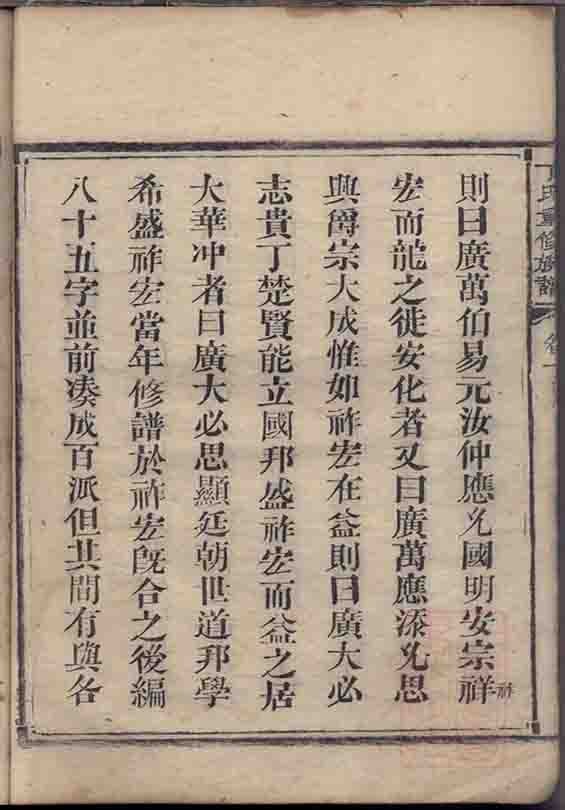 丁氏重修族譜 卷一
則曰廣萬伯易元汝仲應允國明安宗祥
祚
宏而龍之徙安化者又曰廣萬應添允思
興爵宗大成惟如祚宏在益則曰廣大必
志貴丁楚賢能立國邦盛祚宏而益之居
大華冲者曰廣大必思顯廷朝世道邦學
希盛祚宏當年修譜於祚宏旣合之後編
八十五字並前凑成百派但其間有與各